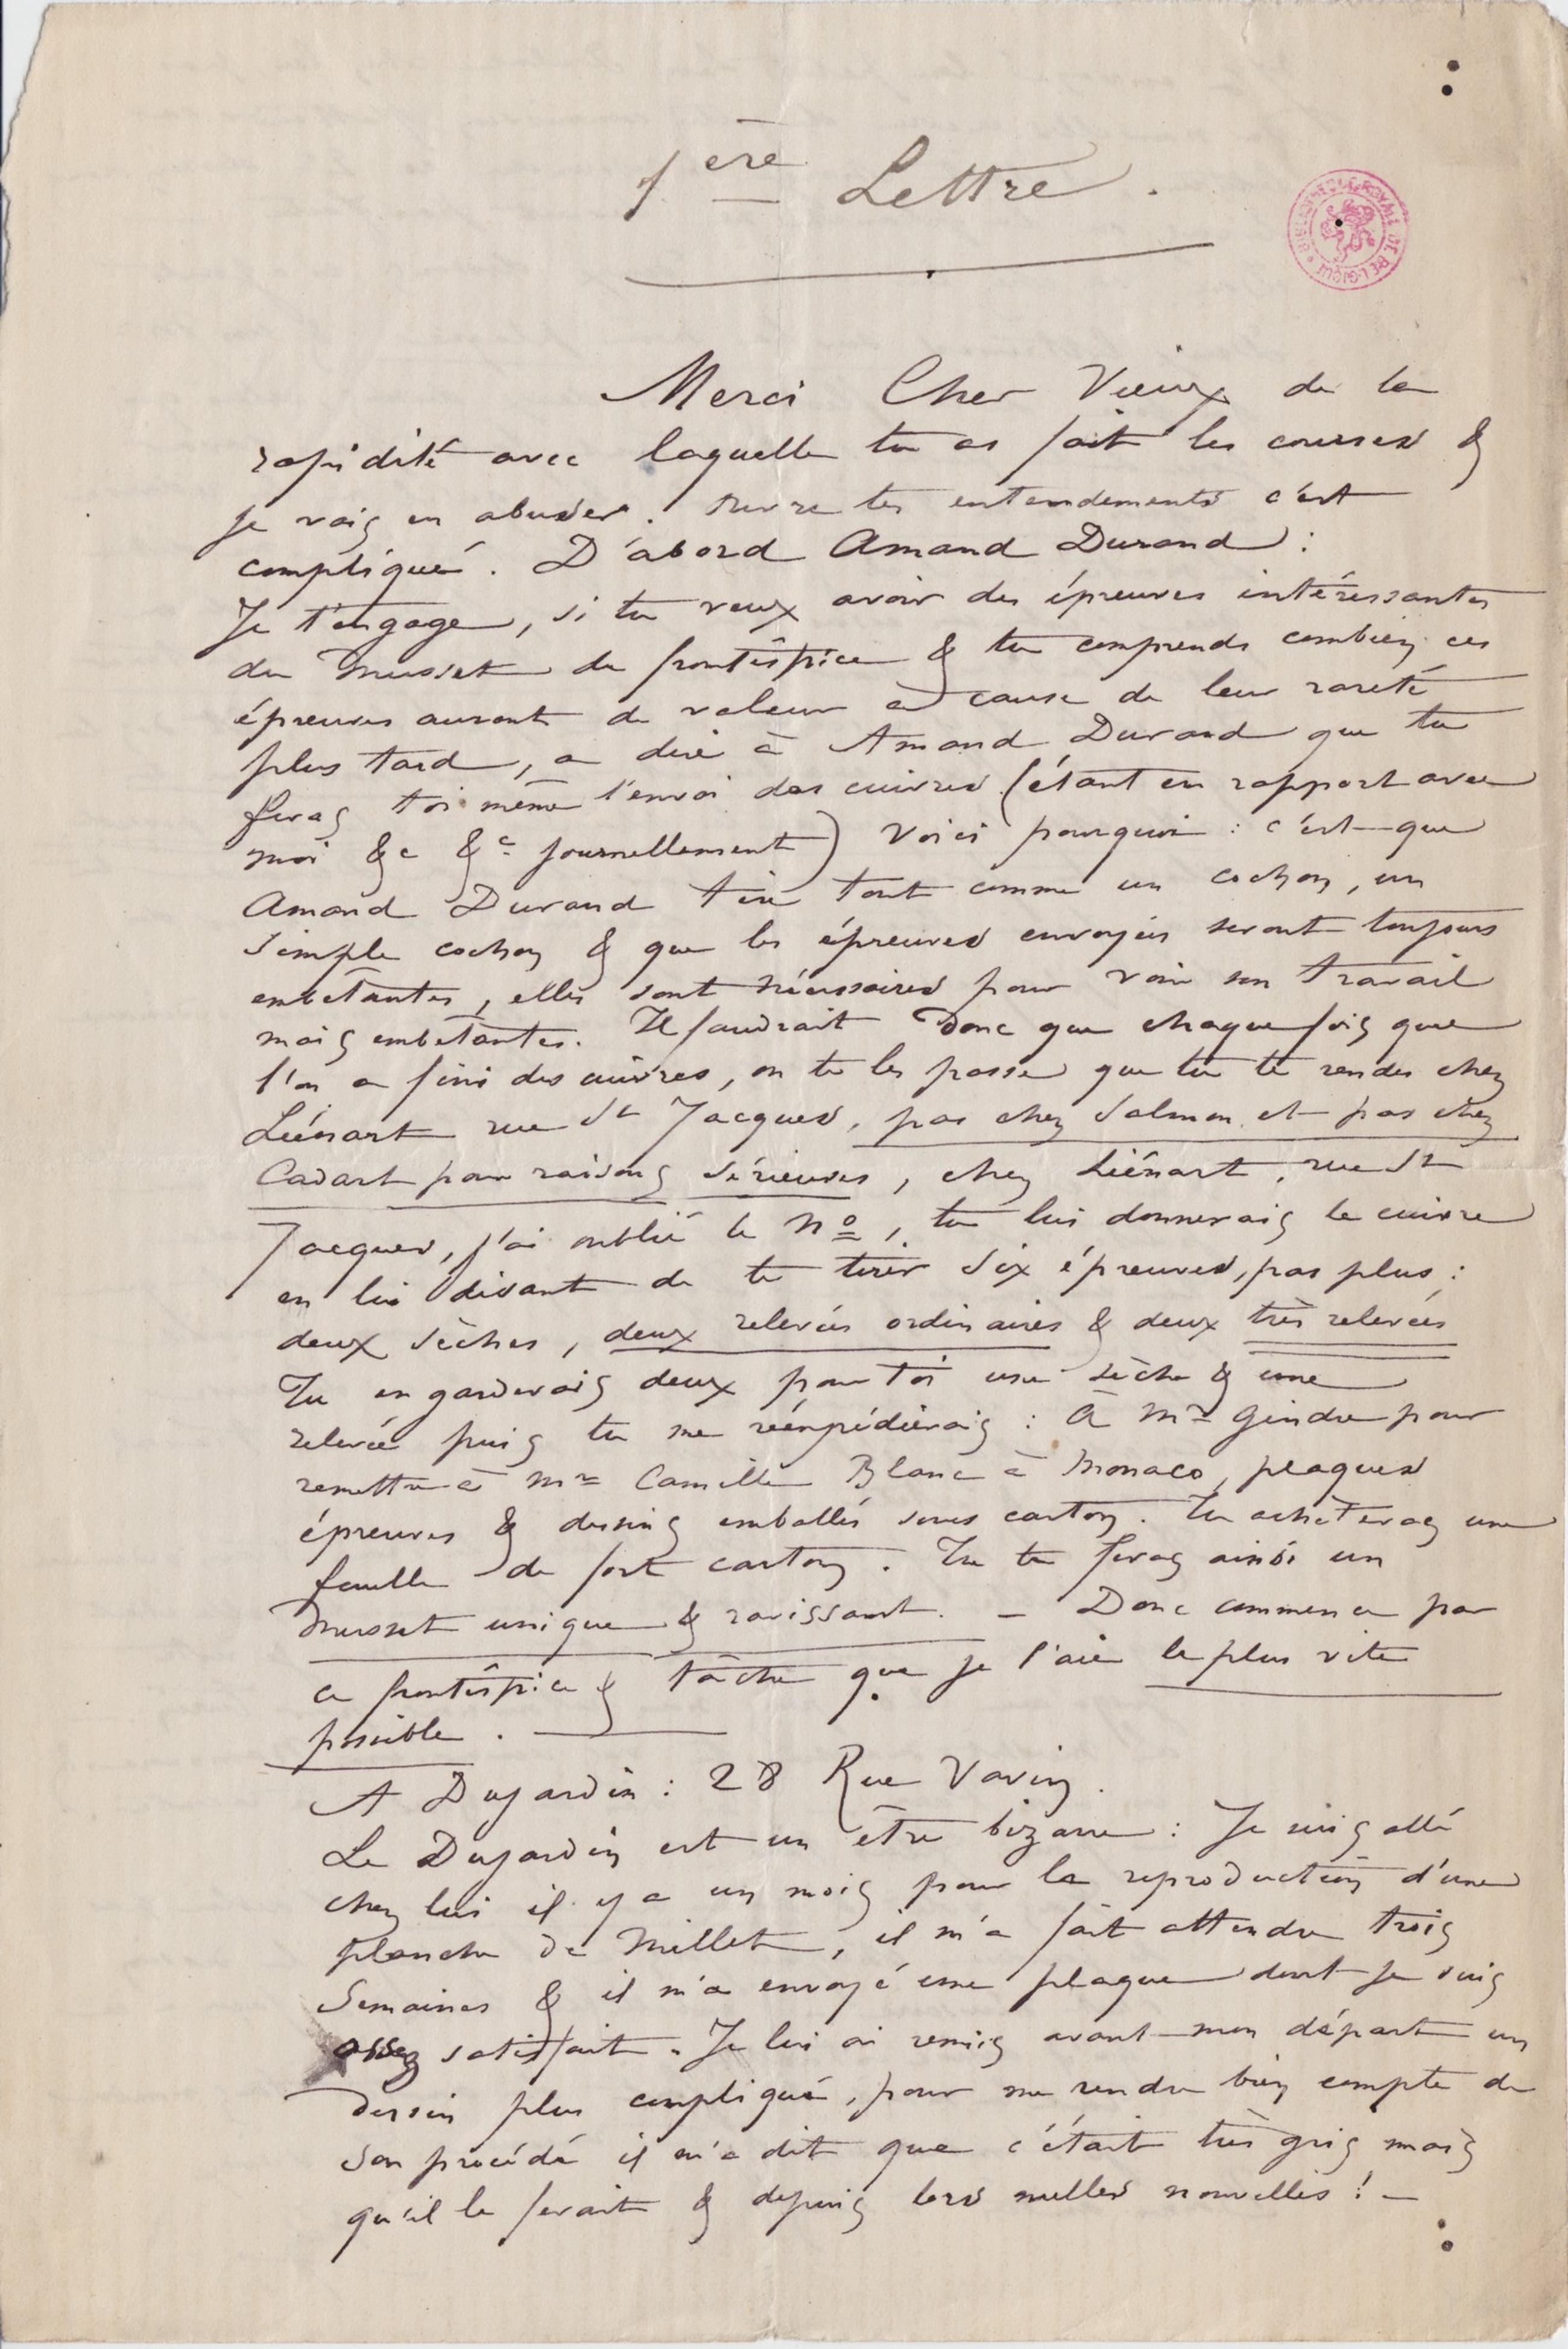 1ère Lettre.
BIBLIOTHÈQUE ROYALE DE BELGIQUE
Merci Cher Vieux de la
rapidité avec laquelle tu as fait les courses &
je vais en abuser. Ouvre tes entendements c'est
compliqué. D'abord Amand Durand :
Je t'engage, si tu veux avoir des épreuves intéressantes
du Musset du frontispice & tu comprends combien ces
épreuves auront de valeur à cause de leur rareté
plus tard, a dire à Amand Durand que tu
feras toi même l'envoi des cuivres (étant en rapport avec
moi &c &c journellement) Voici pourquoi : c'est que
Amand Durand tire tout comme un cochon, un
simple cochon & que les épreuves envoyées seront toujours
embêtantes, elles sont nécessaires pour voir son travail
mais embêtantes. Il faudrait Donc que chaque fois que
l'on a fini des cuivres, on te les passe que tu te rendes chez
Liénart rue St Jacques, pas chez Salmon et pas chez
Cadart pour raisons sérieuses, chez Liénart, rue St
Jacques, j'ai oublié le No, tu lui donnerais le cuivre
en lui disant de te tirer Six épreuves, pas plus :
deux sèches, deux relevées ordinaires & deux très relevées
Tu en garderais deux pour toi une sèche & une
relevée puis tu me réexpédierais : à Mr Gindre pour
remettre à Mr Camille Blanc à Monaco, plaques
épreuves & dessins emballés sous carton. Tu achèteras une
feuille de fort carton. Tu te feras ainsi un
Musset unique & ravissant. — Donc commence par
ce frontispice & tâche que je l'aie le plus vite
possible. —
A Dujardin : 28 Rue Vavin.
Le Dujardin est un être bizarre : Je suis allé
chez lui il y a un mois pour la reproduction d'une
planche de Millet, il m'a fait attendre trois
Semaines & il m'a envoyé une plaque dont je suis
assez satisfait. Je lui ai remis avant mon départ un
Dessin plus compliqué, pour me rendre bien compte de
son procédé il m'a dit que c'était très gris mais
qu'il le ferait & depuis lors nulles nouvelles ! —